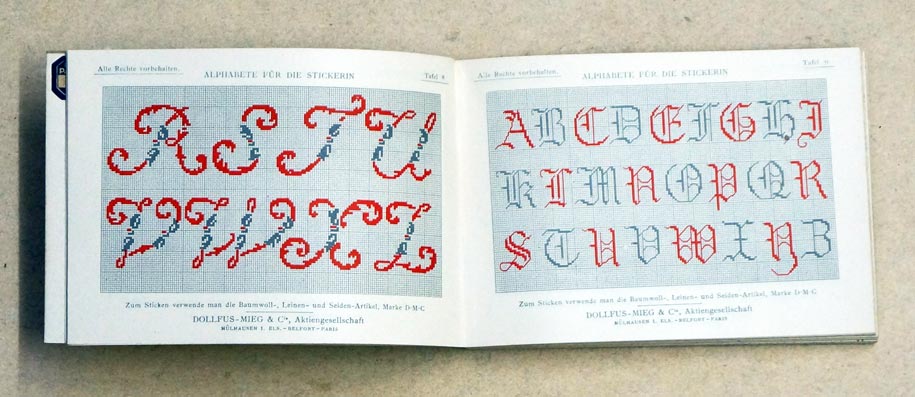 Alle Rechte vorbehalten.
ALPHABETE FÜR DIE STICKERIN
Tafel 8
R S T U
V W X Z
Zum Sticken verwende man die Baumwoll-, Leinen- und Seiden-Artikel, Marke D·M·C
DOLLFUS-MIEG & Cie, Aktiengesellschaft
MÜLHAUSEN I. ELS. – BELFORT – PARIS
Alle Rechte vorbehalten.
ALPHABETE FÜR DIE STICKERIN
Tafel 9
A B C D E F G H I
K L M N O P Q R
S T U V W X Y Z
Zum Sticken verwende man die Baumwoll-, Leinen- und Seiden-Artikel, Marke D·M·C
DOLLFUS-MIEG & Cie, Aktiengesellschaft
MÜLHAUSEN I. ELS. – BELFORT – PARIS